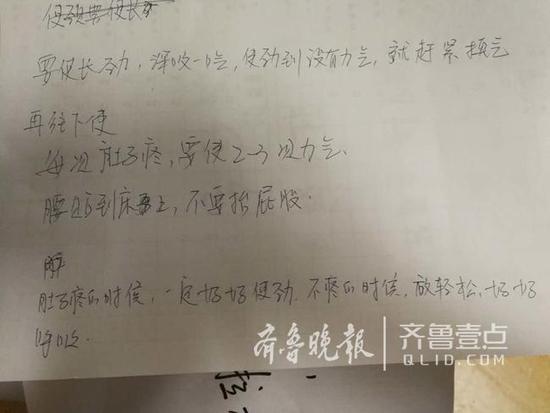 要使长劲,深吸一口气,使劲到没有力气,就赶紧换气
再往下使
每次肚子疼,要使2-3次力气、
腰贴到床上,不要抬屁股.
肚子疼的时候,一定好好使劲.不疼的时候,放轻松,好好
呼吸.
齐鲁晚报 齐鲁壹点
QLID.COM